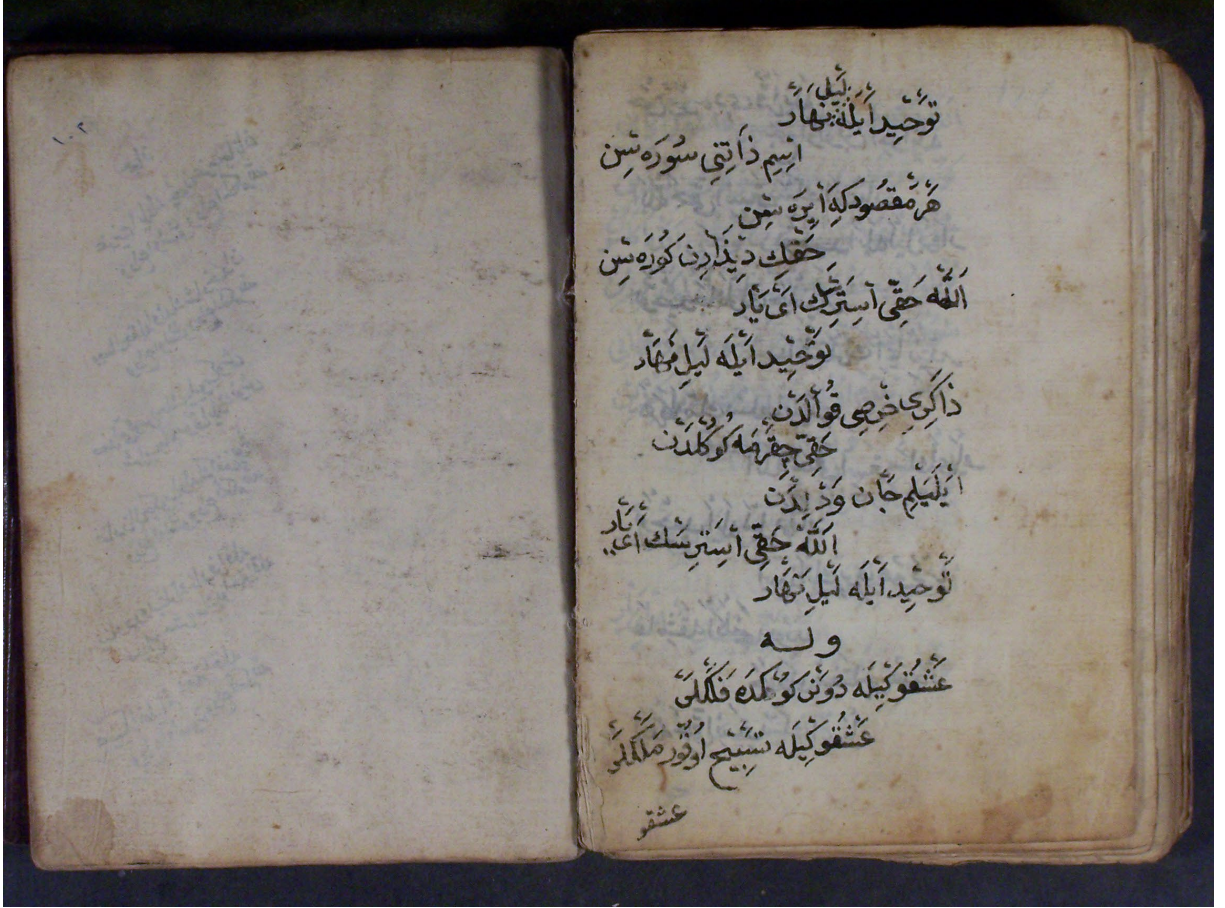 توحيد ايله ليلى نهار
اسم ذاتنى سوره سن
هر مقصودكه ايره سن
حقك ديذارن كوره سن
الله حقى استرسك اى يار
توحيد ايله ليل نهار
ذاكرى خرصى قوالدن
حقى چقرمه كوكلدن
ايليلم جان ودلدن
الله حقى استرسك اى يار
توحيد ايله ليل نهار
وله
عشقوكيله دونن كوكده فلكلر
عشقوكيله تسبيح اوقور ملكلر
عشقو
١٠٢